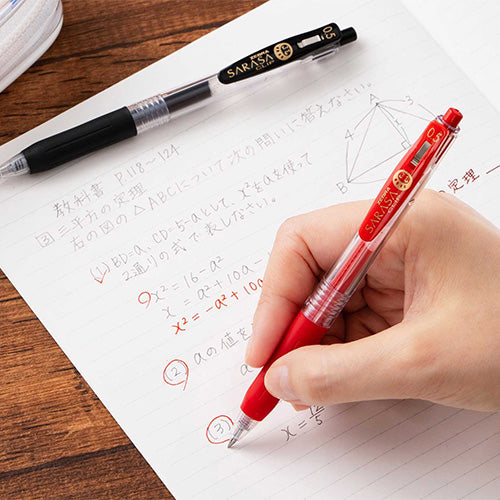 ZEBRA
SARASA
CLIP 0.5
ZEBRA
SARASA
CLIP 0.5
教科書 P.118~124
③ 三平方の定理
右の図の△ABCについて次の問いに答えなさい。
A
4
3
B
の定理
(1) BD=a、CD=5-aとして、x²をaを使って
2通りの式で表しなさい。
x²=16-a²
x = a²+10a-
x²=-a²+10
(2) aの値を
(3)
x = 12/5